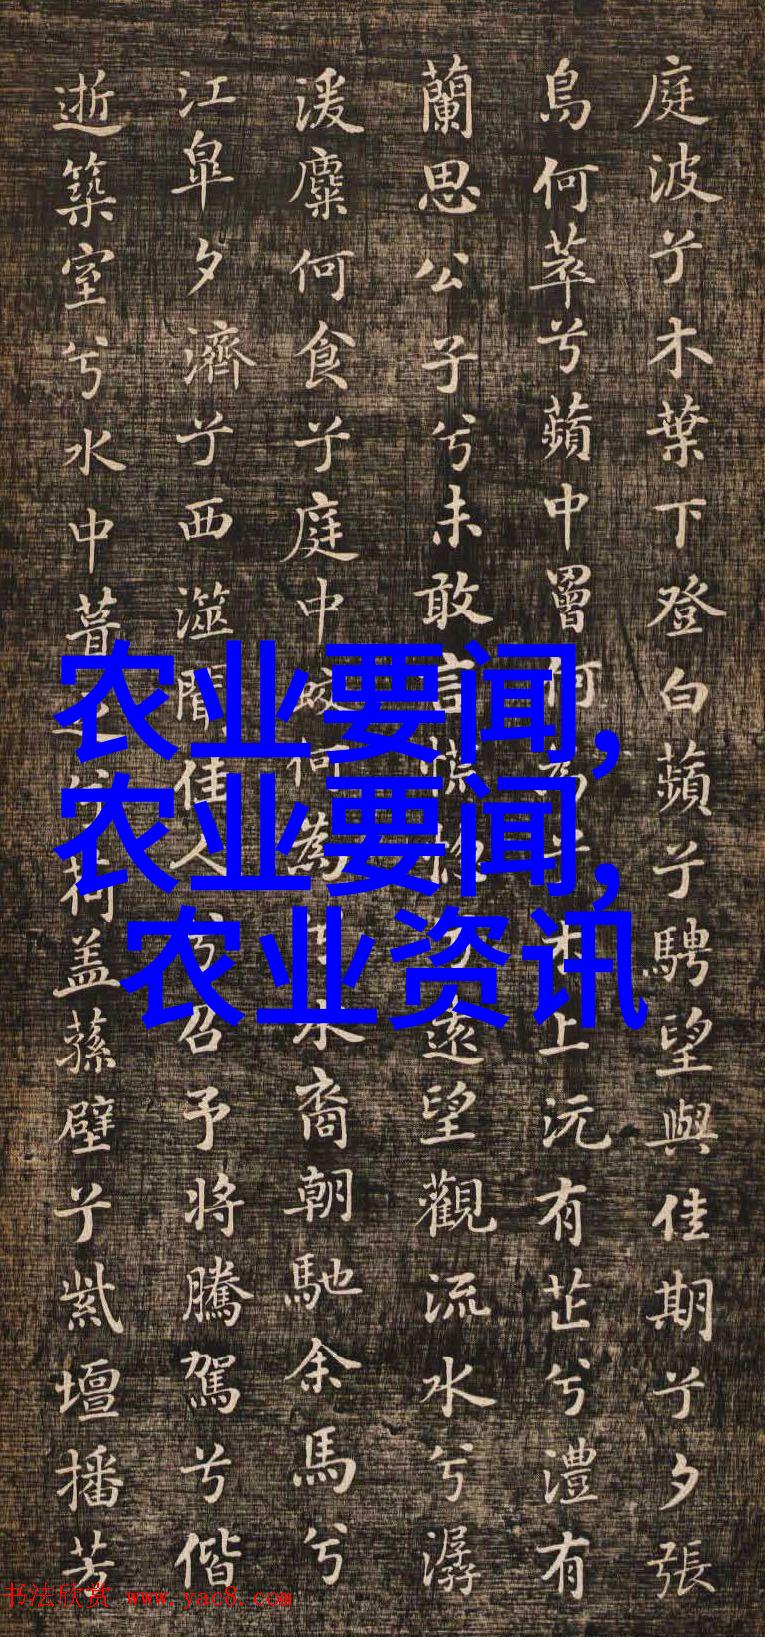 庭波兮木葉下登白蘋兮騁望與佳期兮夕張
鳥何萃兮蘋中罾何為兮木上沅有芷兮澧有
蘭思公子兮未敢言慌惚兮遠望觀流水兮潺
湲麋何食兮庭中蛟何為兮水裔朝馳余馬兮
江皋夕濟兮西澨聞佳人兮召予將騰駕兮偕
逝築室兮水中葺之以荷盖蓀壁兮紫壇播芳
农业要闻,
农业要闻,
农业资讯
书法欣赏 www.yac8.com